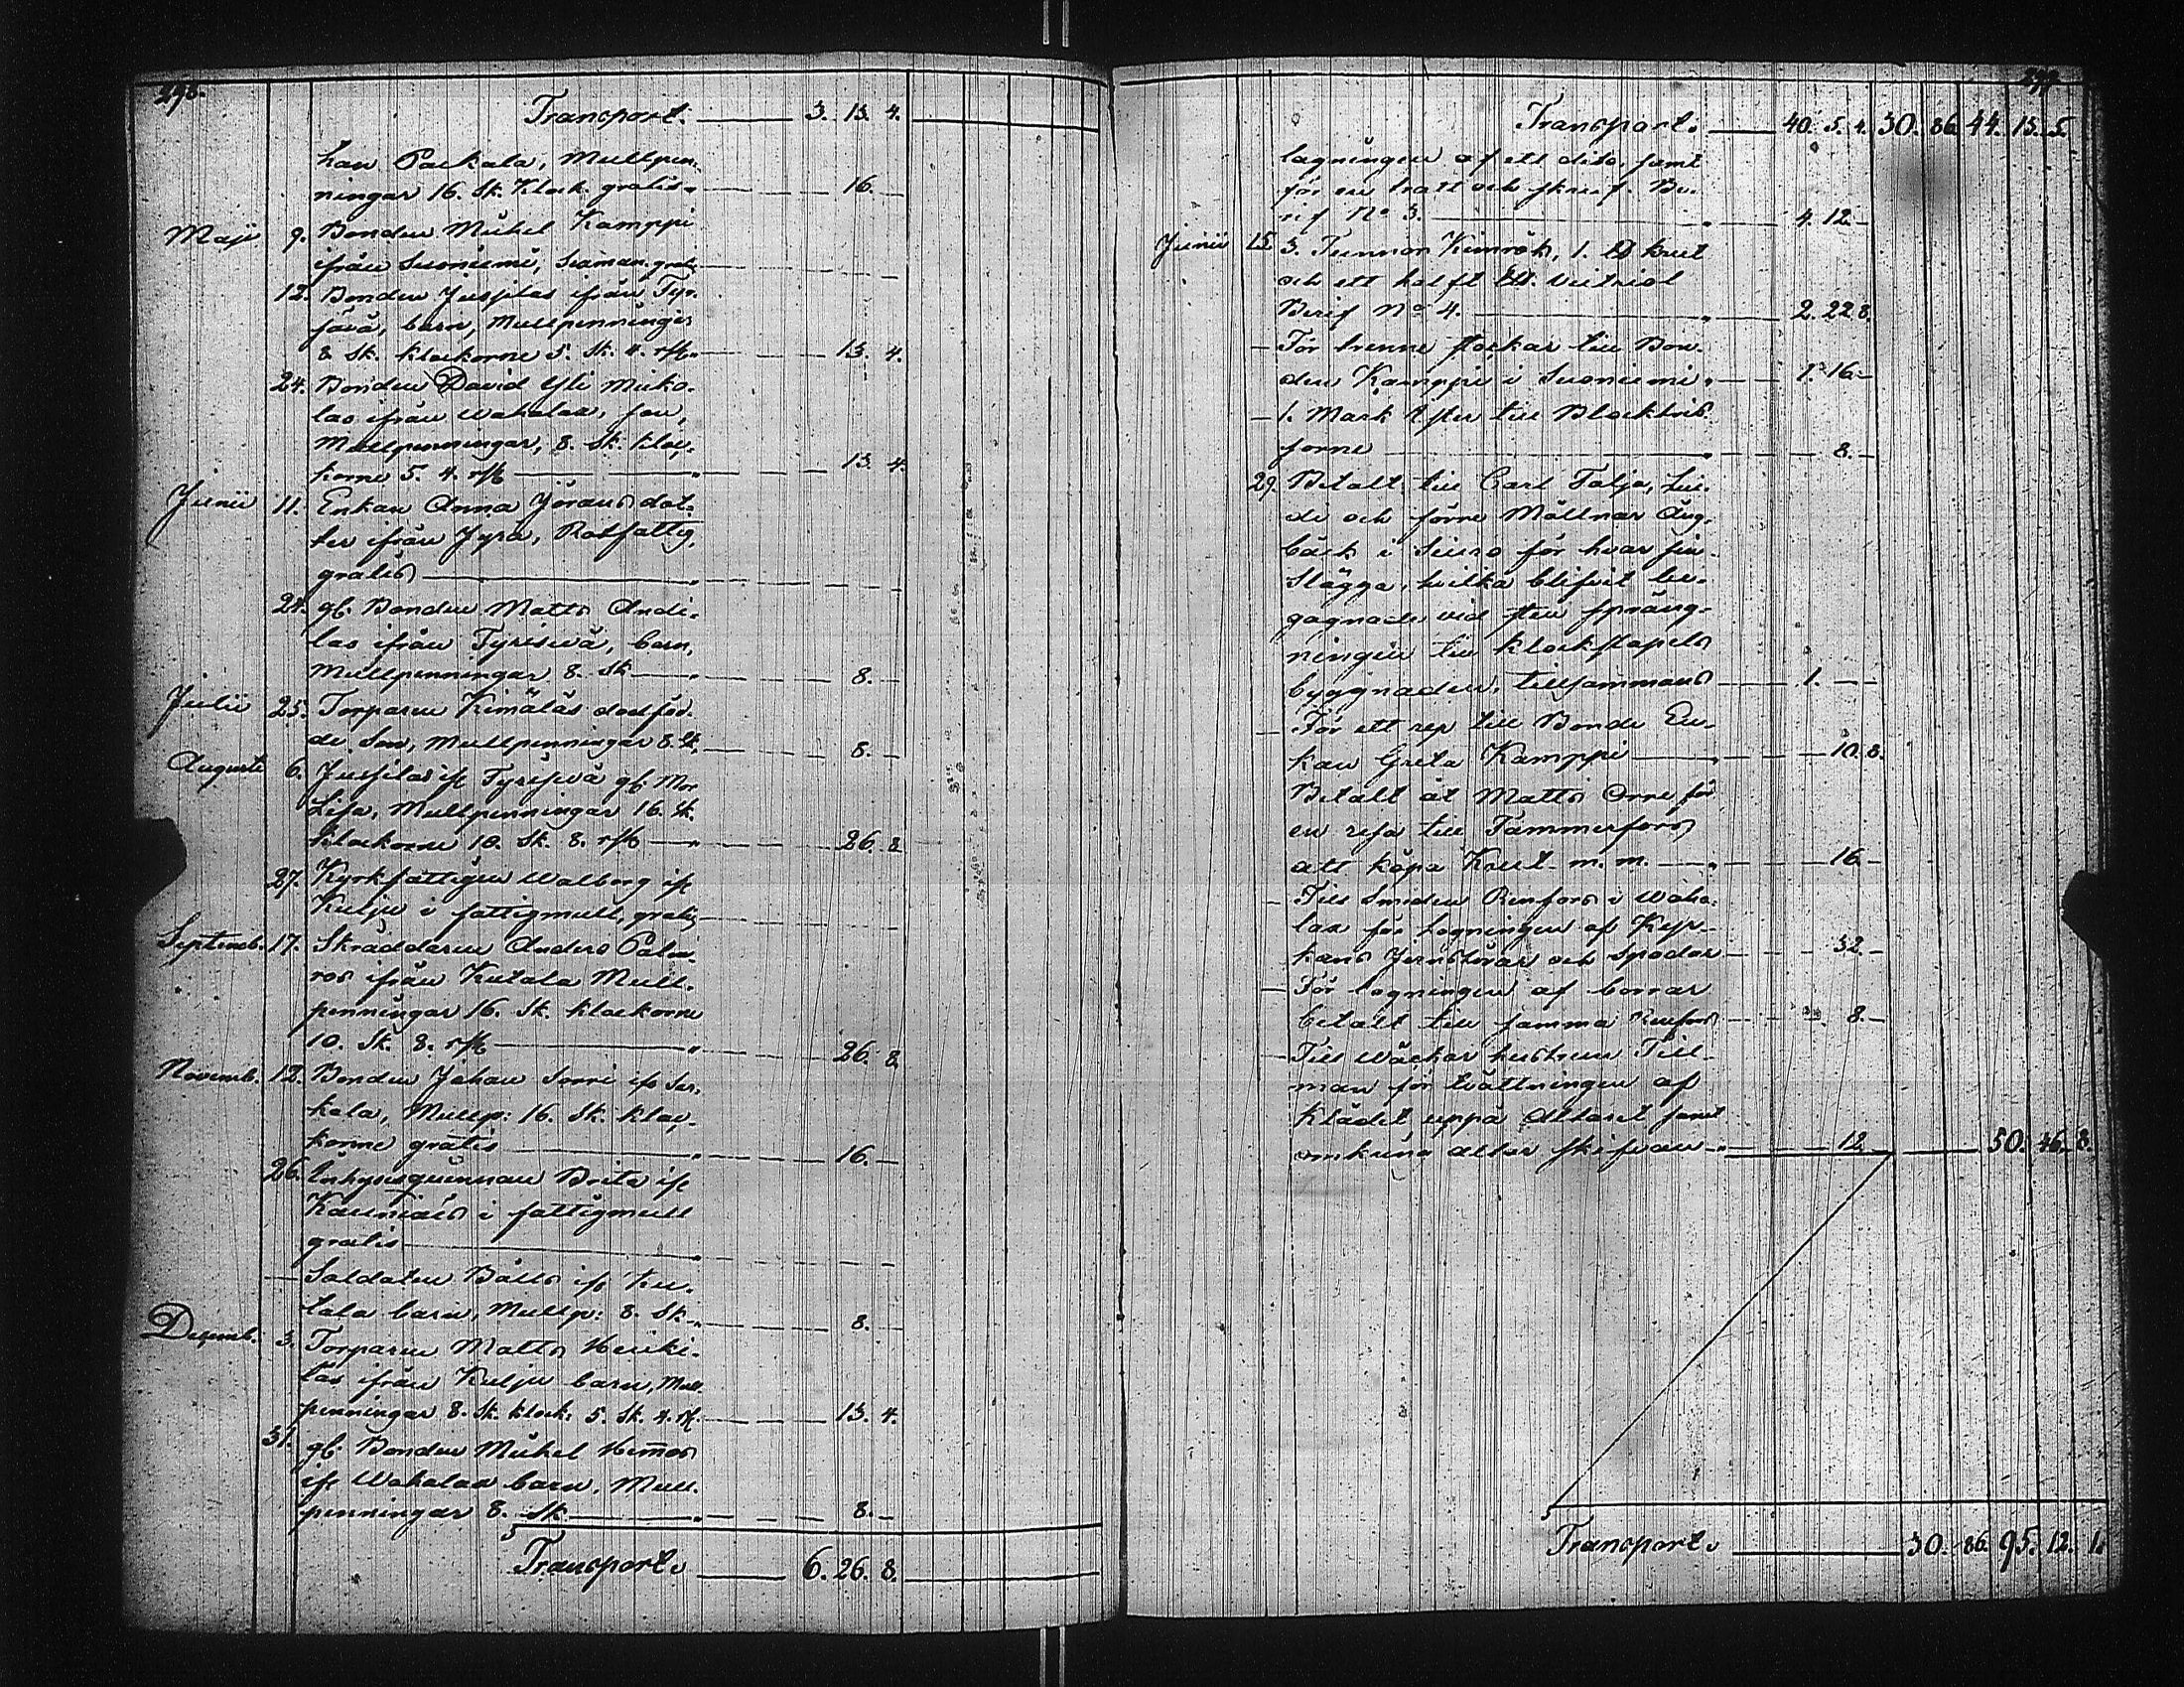 298.
Transport. 3. 13. 4.
han Packala, Mullpen-
ningar 16. Sk. Klock. gratis 16.
Maji 9. Bonden Mickel Kamppi
ifrån Suoniemi,
12. Bonden Jussilas ifrån Tyr-
jävä, barn, Mullpenningar
8 Sk. klockorne 5. Sk. 4. rst. 13. 4.
24. Bonden David Yli Micko-
las ifrån Wahalax, son,
Mullpenningar, 8. Sk. kloc-
korne 5. 4. rst. 13. 4.
Junii 11. Enkan Anna Jöransdot-
ter ifrån Jyrä, Rotfattig,
gratis
24. gf. Bonden Matts Andi-
las ifrån Tyrisevä, barn,
Mullpenningar 8. Sk 8.
Julii 25. Torparen Kimäläs dödföd-
de Son, Mullpenningar 8. Sk. 8.
Augusti 6. Jussilas ifr Tyrisevä gf. Mor
Lisa, Mullpenningar 16. Sk.
klockorne 10. Sk. 8. rst 26. 8
27. Kyrkfattigen Walborg ifr
Kulju i fattigmull, gratis
Septemb. 17. Skräddaren Anders Palm-
ros ifrån Kutala Mull-
penningar 16. Sk. klockorne
10. Sk. 8. rst. 26. 8
Novemb. 12. Bonden Johan Sorri ifr Sar-
kola, Mullp: 16. Sk. kloc-
korne gratis 16.
26. Inhysesqvinnan Brita ifr
i fattigmull
gratis
— Soldaten Bälts ifr Ku-
tala barn, Mullp: 8. Sk 8.
Decemb. 3. Torparen Matts Heicki-
las ifrån Kulju barn, Mull-
penningar 8. Sk. klock. 5. Sk. 4. rst. 13. 4.
31. gf. Bonden Mickel Heimos
ifr Wahalax barn, Mull-
penningar 8. Sk 8.
Transport. 6. 26. 8.
299.
Transport. 40. 5. 4. 30. 86. 44. 13. 5.
lagningen af ett dito, samt
för en tratt och skruf. Ve-
rif No 3. 4. 12.
Junii 15. 3. Tunnor Kimrök, 1. ℔ krut
och ett halft ℔. Victriol
Verif No 4. 2. 22 8.
— För trenne stockar till Bon-
den Kamppi i Suoniemi 1. 16.
— 1. Mark till
8.
29. Betalt till Carl Talja,
och förre Möllnar Äng-
bäck i Siuro för hvar sin
Slägga, hvilka blifvit be-
gagnade vid sten spräng-
ningen till klockstapels
byggnaden, tillsammans 1.
— För ett rep till Bonde En-
kan Greta Kamppi 10. 8.
Betalt åt Matts Orre för
en resa till Tammerfors
att köpa Krut m. m. 16
— Till Smeden Rinfors i Waha-
lax för lagningen af Kyr-
kans Jernstörar och Spadar 32.
— För lagningen af borrar
betalt till samma 8.
— Till hustrun Till-
man för tvättningen af
klädet uppå Altaret samt
omkring altar skifvan 12 50. 46. 8.
Transport. 30. 86. 95. 12. 1.